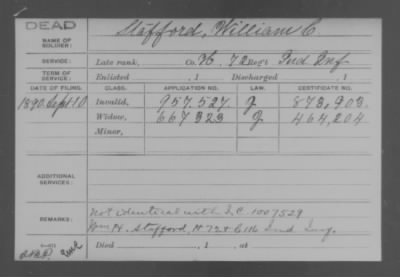 DEAD
NAME OF SOLDIER: Stafford, William C.
SERVICE: Late rank, Co. H, 72 Reg't Ind Inf
TERM OF SERVICE: Enlisted , 1 Discharged , 1
DATE OF FILING. CLASS. APPLICATION NO. LAW. CERTIFICATE NO.
1890 Sept 10 Invalid, 957.527 J 873,903.
Widow, 667 323 J 464,204
Minor,
ADDITIONAL SERVICES:
REMARKS: Not identical with I.C. 1007529
Wm H. Stafford, H 72 & 116 Ind Inf.
Died , 1 , at